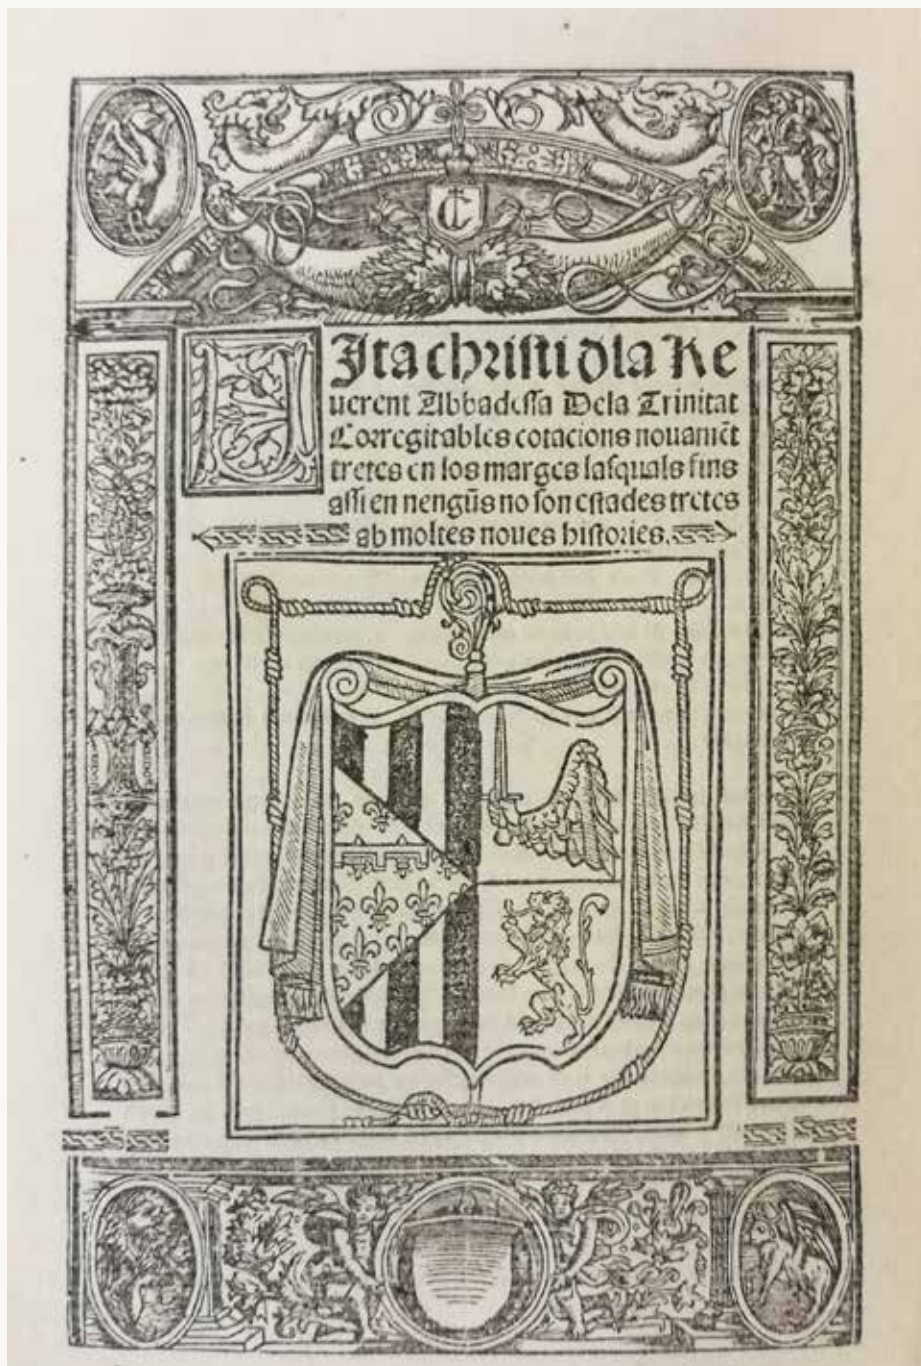 VIta christi dla Re
uerent Abbadessa Dela Trinitat
Corregit ab les cotacions nouamēt
tretes en los marges lasquals fins
assi en nengūs no son estades tretes
ab moltes noues histories.